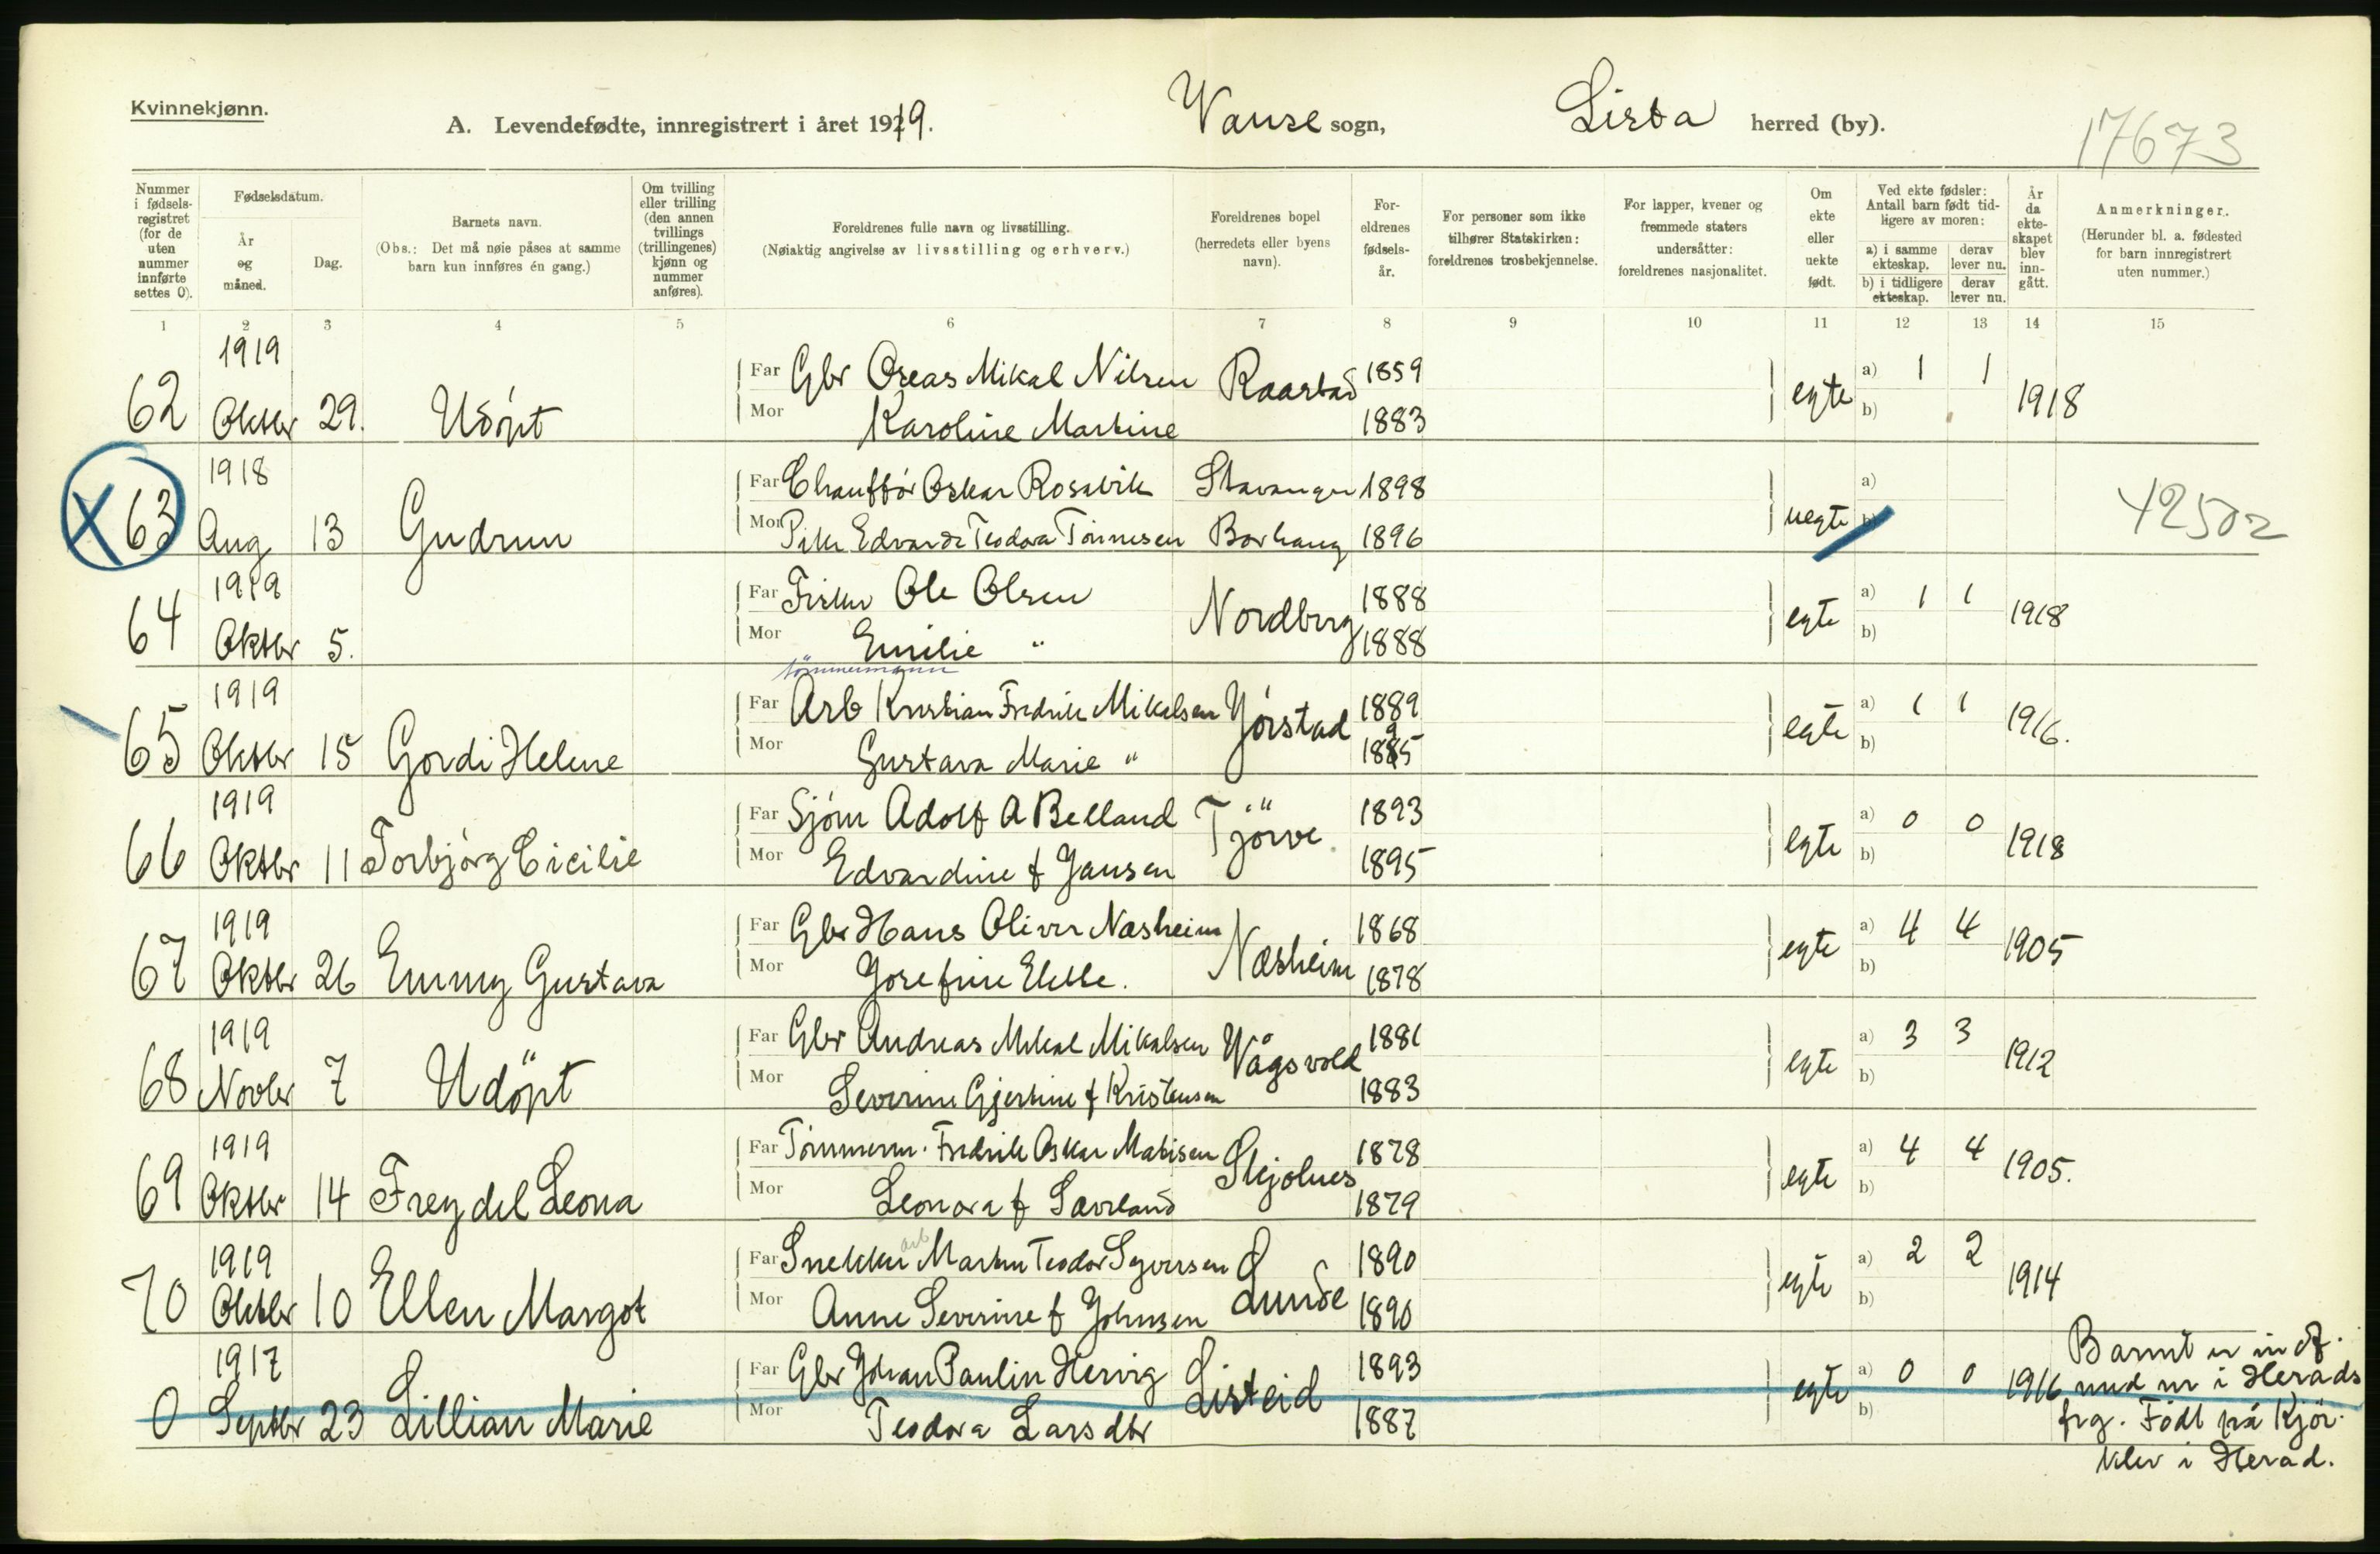 Kvinnekjønn.
A. Levendefødte, innregistrert i året 1919. Vanse sogn, Lista herred (by).
17673
Nummer i fødsels-registret (for de uten nummer innførte settes 0).
Fødselsdatum.
År og måned.
Dag.
Barnets navn.
(Obs.: Det må nøie påses at samme barn kun innføres én gang.)
Om tvilling eller trilling (den annen tvillings (trillingenes) kjønn og nummer anføres).
Foreldrenes fulle navn og livsstilling.
(Nøiaktig angivelse av livsstilling og erhverv.)
Foreldrenes bopel (herredets eller byens navn).
For-eldrenes fødsels-år.
For personer som ikke tilhører Statskirken: foreldrenes trosbekjennelse.
For lapper, kvener og fremmede staters undersåtter: foreldrenes nasjonalitet.
Om ekte eller uekte født.
Ved ekte fødsler: Antall barn født tid-ligere av moren:
a) i samme ekteskap. derav lever nu.
b) i tidligere ekteskap. derav lever nu.
År da ekte-skapet blev inn-gått.
Anmerkninger.
(Herunder bl. a. fødested for barn innregistrert uten nummer.)
1 2 3 4 5 6 7 8 9 10 11 12 13 14 15
1919 Far Gbr Oreas Mikal Nilsen Raastad 1859 a) 1 1
62 Oktbr 29. Udöpt Mor Karoline Martine 1883 egte b) 1918
1918 Far Chauffór Oskar Rosavik Stavanger 1898 a)
X 63 Aug 13 Gudrun Mor Pike Edvarda Teodora Tönnesen Borhaug 1896 uegte b) 42502
1919 Far Fisker Ole Olsen Nordberg 1888 a) 1 1
64 Oktbr 5. Mor Emilie " 1888 egte b) 1918
tömmermann
1919 Far Arb Kristian Fredrik Mikalsen Jörstad 1889 a) 1 1
65 Oktbr 15 Gordi Helene Mor Gustava Marie " 1895 egte b) 1916.
1919 Far Sjöm Adolf A Belland Tjörve 1893 a) 0 0
66 Oktbr 11 Torbjörg Cicilie Mor Edvardine f Jansen 1895 egte b) 1918
1919 Far Gbr Hans Oliver Næsheim Næsheim 1868 a) 4 4
67 Oktbr 26 Emmy Gustava Mor Josefine Elelle. 1878 egte b) 1905
1919 Far Gbr Andreas Mikal Mikalsen Vågsvold 1881 a) 3 3
68 Novbr 7 Udöpt Mor Severine Gjertine f Kristensen 1883 egte b) 1912
1919 Far Tömmerm. Fredrik Oskar Matisen Skjolnes 1878 a) 4 4
69 Oktbr 14 Freydel Leona Mor Leonora f Sævland 1879 egte b) 1905.
arb
1919 Far Snekker Martin Teodor Syversen Lunde 1890 a) 2 2
70 Oktbr 10 Ellen Margot Mor Anne Severine f Johnsen 1890 egte b) 1914
1917 Far Gbr Johan Paulin Hervig Listeid 1893 a) 0 0
0 Septbr 23 Lillian Marie Mor Teodora Larsdtr 1887 egte b) 1916
Barnet er indf.
med nr i Herads
frg. Född på Kjör-
klev i Herad.